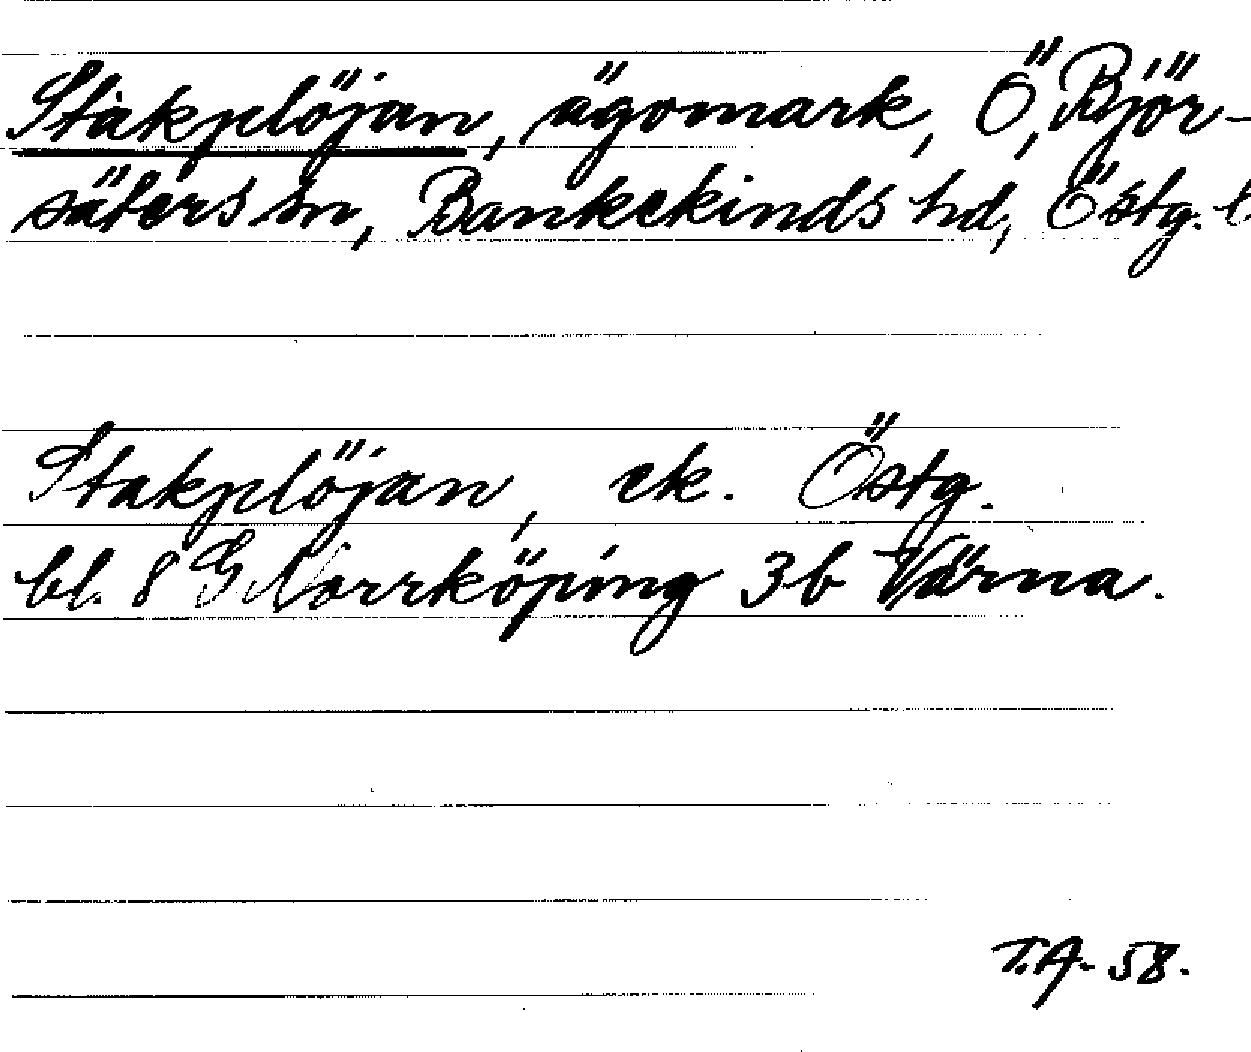 Stakplöjan, ägomark, Ö, Björ-
säters sn, Bankekinds hd, Östg. l.
Stakplöjan, ek. Östg.
bl. 8 G Norrköping 3b Värna.
T.A. 58.